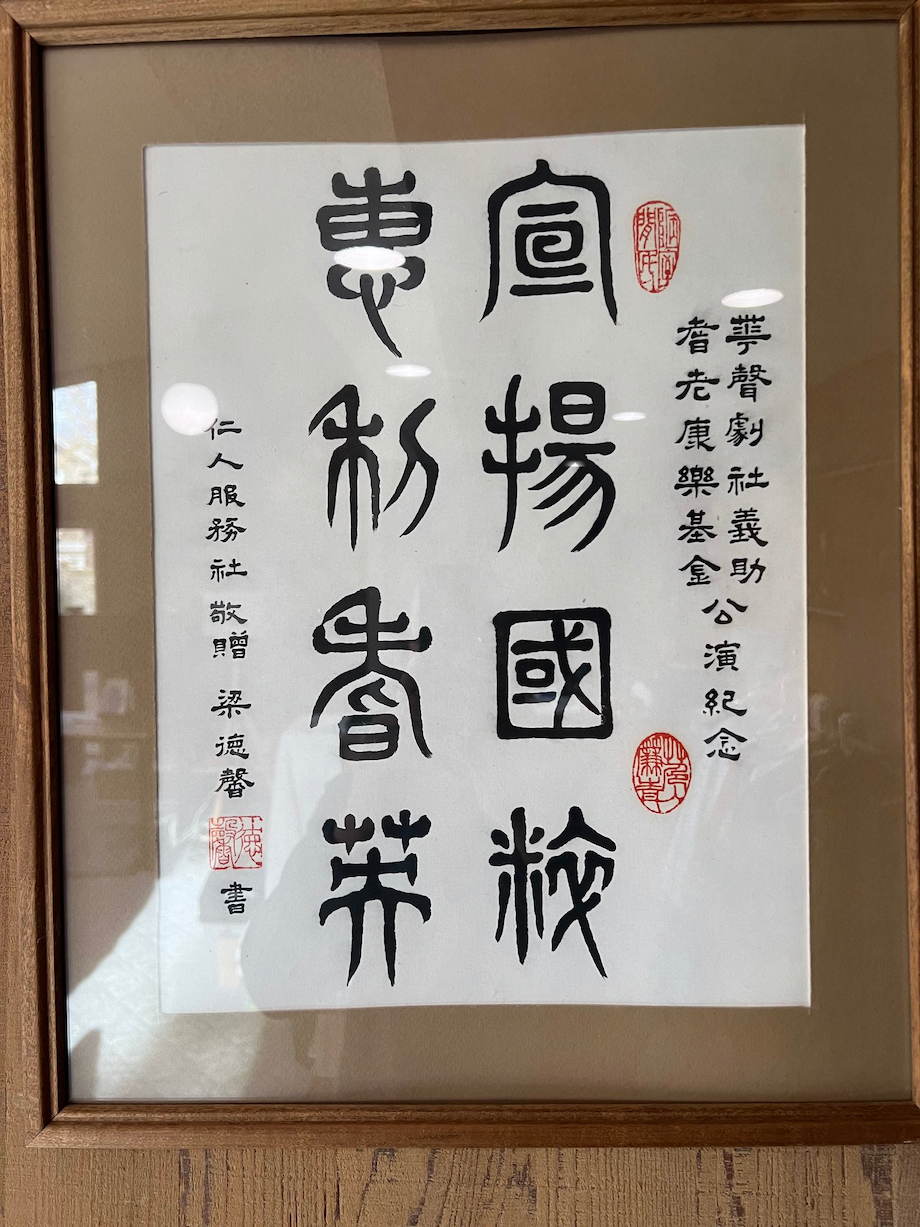 華聲劇社義助
耆老康樂基金
公演紀念
宣揚國粹
惠利耆英
仁人服務社 敬贈 梁德馨 書
德馨